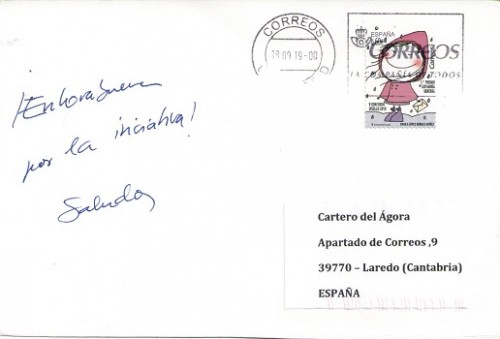 CORREOS
18 09 19-00
ESPAÑA
CORREOS
LA COMPAÑÍA DE TODOS
¡Enhorabuena
por la iniciativa!
Saludos
Cartero del Ágora
Apartado de Correos ,9
39770 – Laredo (Cantabria)
ESPAÑA